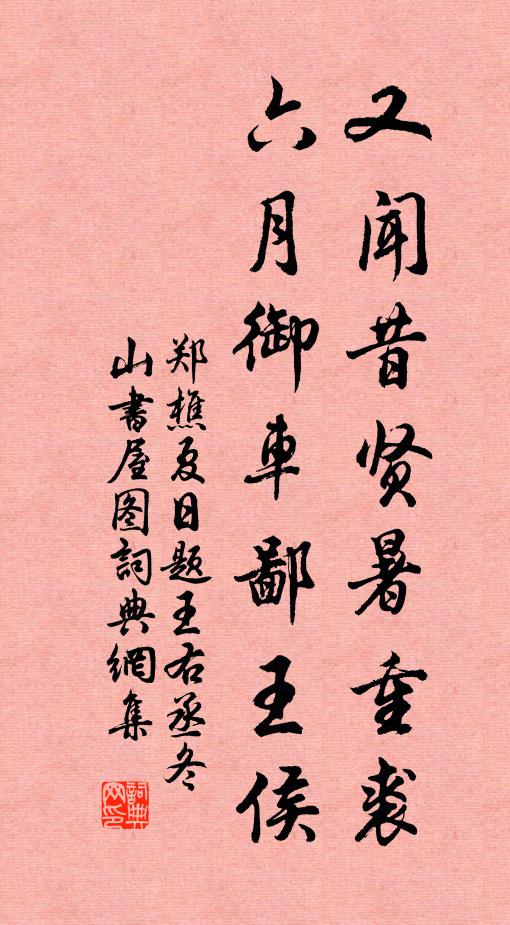 又闻昔贤暑重裘
六月御车鄙王侯
郑樵夏日题王右丞冬
山书屋图詞典網集
詞典网印